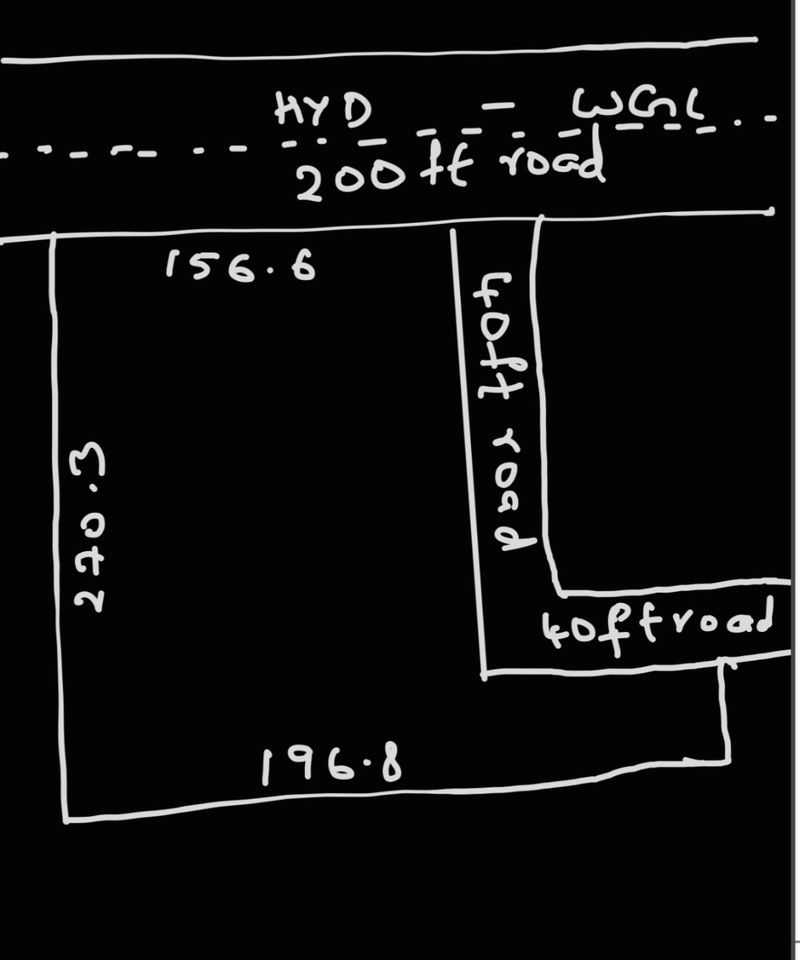 HYD - WGL
200 ft road
156.6
40ft road
220.3
40ft road
196.8